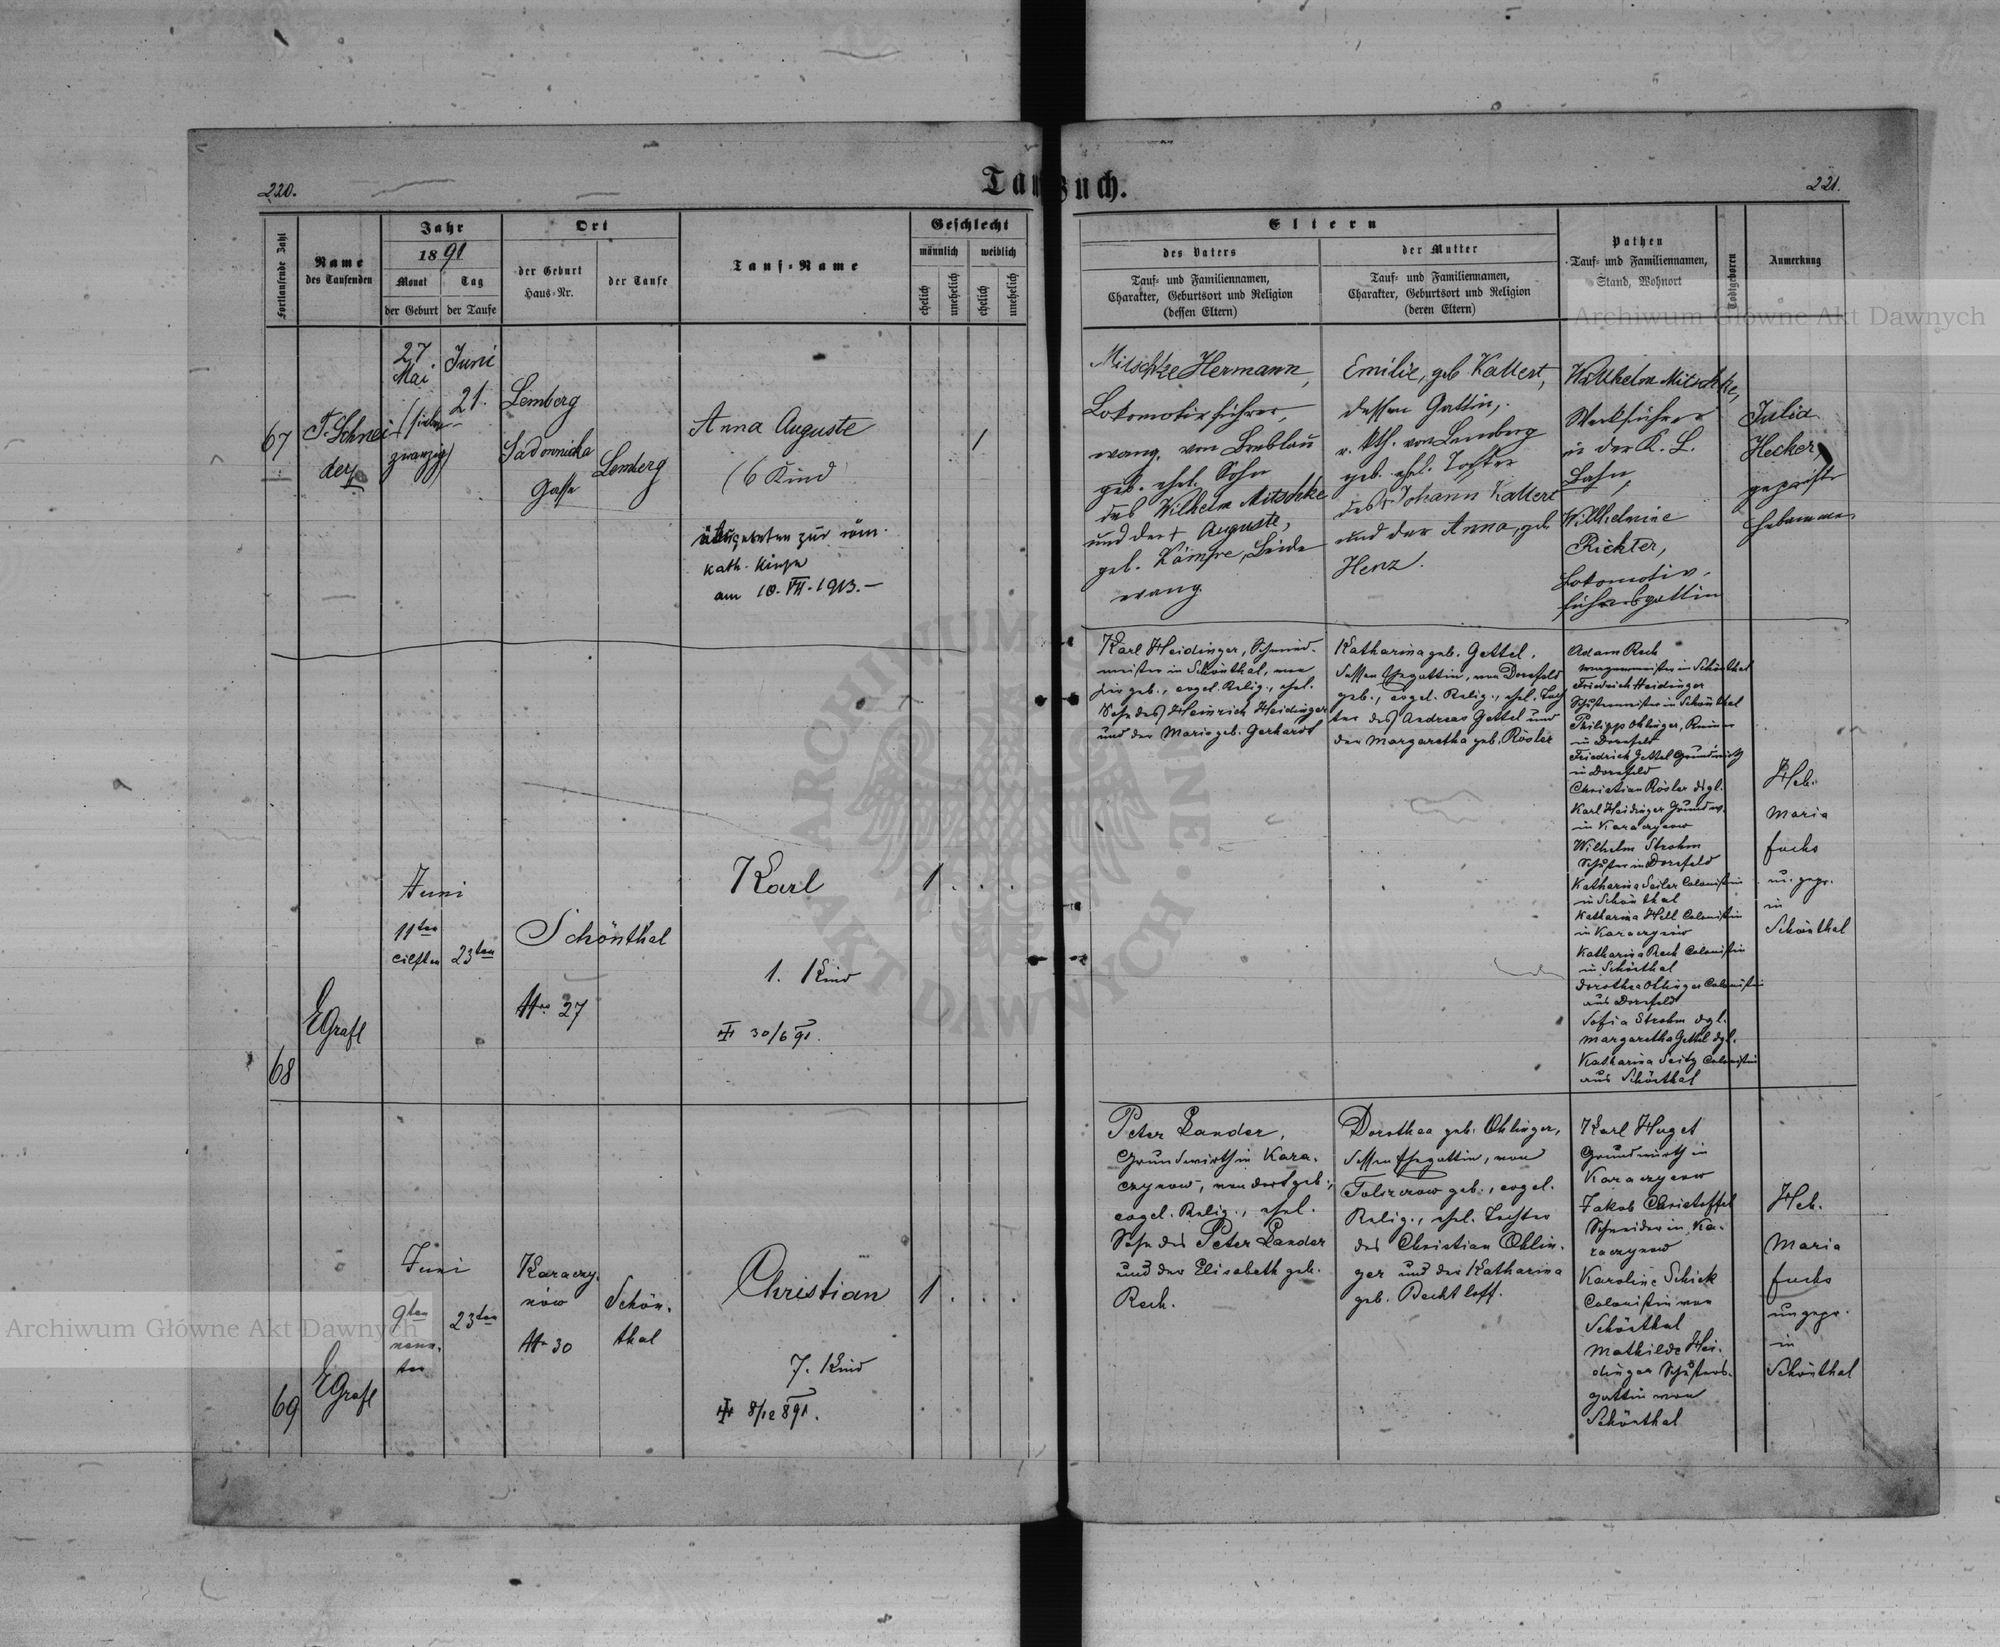 Taufbuch.
220.
221.
Fortlaufende Zahl
Name
des Taufenden
Jahr
1891
Monat
Tag
der Geburt
der Taufe
Ort
der Geburt
Haus-Nr.
der Taufe
Tauf-Name
Geschlecht
männlich
weiblich
ehelich
unehelich
ehelich
unehelich
Eltern
des Vaters
Tauf- und Familiennamen,
Charakter, Geburtsort und Religion
(dessen Eltern)
der Mutter
Tauf- und Familiennamen,
Charakter, Geburtsort und Religion
(deren Eltern)
Pathen
Tauf- und Familiennamen,
Stand, Wohnort
Todtgeboren
Anmerkung
67
T. Schnei
der
27
Mai
(sieben
zwanzig)
Juni
21.
Lemberg
Sadownicka
Gasse
Lemberg
Anna Auguste
(6 Kind)
übergetreten zur röm.
kath. Kirche
am 10. VII. 1913.—
1
Mitschke Hermann,
Lokomotivführer,
evang. von Breslau
geb. ehel. Sohn
des Wilhelm Mitschke
und der + Auguste,
geb. Kämpfe, Beide
evang.
Emilie, geb. Kallert,
dessen Gattin,
r. kth. von Lemberg
geb. ehel. Tochter
des + Johann Kallert
und der Anna, geb.
Henz.
Wilhelm Mitschke,
Werkführer
in der K. L.
Bahn,
Wilhelmine
Richter,
Lokomotiv-
führersgattin
Julia
Hecker,
geprüfte
Hebamme
68
EGrafl
Juni
11ten
eilften
23ten
Schönthal
Nro 27
Karl
1. Kind
30/6 91.
1 . . .
Karl Heidinger, Schmied-
meister in Schönthal, von
hier geb., evgel. Relig., ehel.
Sohn des Heinrich Heidinger
und der Marie geb. Gerhardt
Katharina geb. Gettel,
dessen Ehegattin, von Dornfeld
geb., evgel. Relig., ehel. Toch
ter des Andreas Gettel und
der Margaretha geb. Rösler
Adam Rech
Wagnermeister in Schönthal
Friedrich Heidinger
Schustermeister in Schönthal
Philipp Ohlinger, Riemer
in Dornfeld
Friedrich Gettel Grundwirth
in Dornfeld
Christian Rösler dsgl.
Karl Heidinger Grundw.
in Karaczynow
Wilhelm Strohm
Schuster in Dornfeld
Katharina Seiler Colonistin
in Schönthal
Katharina Hell Colonistin
in Karaczynow
Katharina Rech Colonistin
in Schönthal
Dorothea Ohlinger Colonistin
aus Dornfeld
Sofia Strohm dgl.
Margaretha Gettel dgl.
Katharina Seitz Colonistin
aus Schönthal
Heb.
Maria
Fuchs
ungepr.
in
Schönthal
69
EGrafl
Juni
9ten
neun-
ten
23ten
Karaczy-
nów
Nr 30
Schön-
thal
Christian
7. Kind
8/12 891.
1 . . .
Peter Lander,
Grundwirth in Kara-
czynow, von dort geb.,
evgel. Relig., ehel.
Sohn des Peter Lander
und der Elisabeth geb.
Rech.
Dorothea geb. Ohlinger,
dessen Ehegattin, von
geb., evgel.
Relig., ehel. Tochter
des Christian Ohlin-
ger und der Katharina
geb. Bechtloff.
Karl Huget
Grundwirth in
Karaczynow
Jakob Christoffel
Schneider in Ka-
raczynow
Karoline Schick
Colonistin von
Schönthal
Mathilde Hei-
dinger Schusters-
gattin von
Schönthal
Heb.
Maria
Fuchs
ungepr.
in
Schönthal
Archiwum Główne Akt Dawnych
Archiwum Główne Akt Dawnych
ARCHIWUM GŁÓWNE AKT DAWNYCH